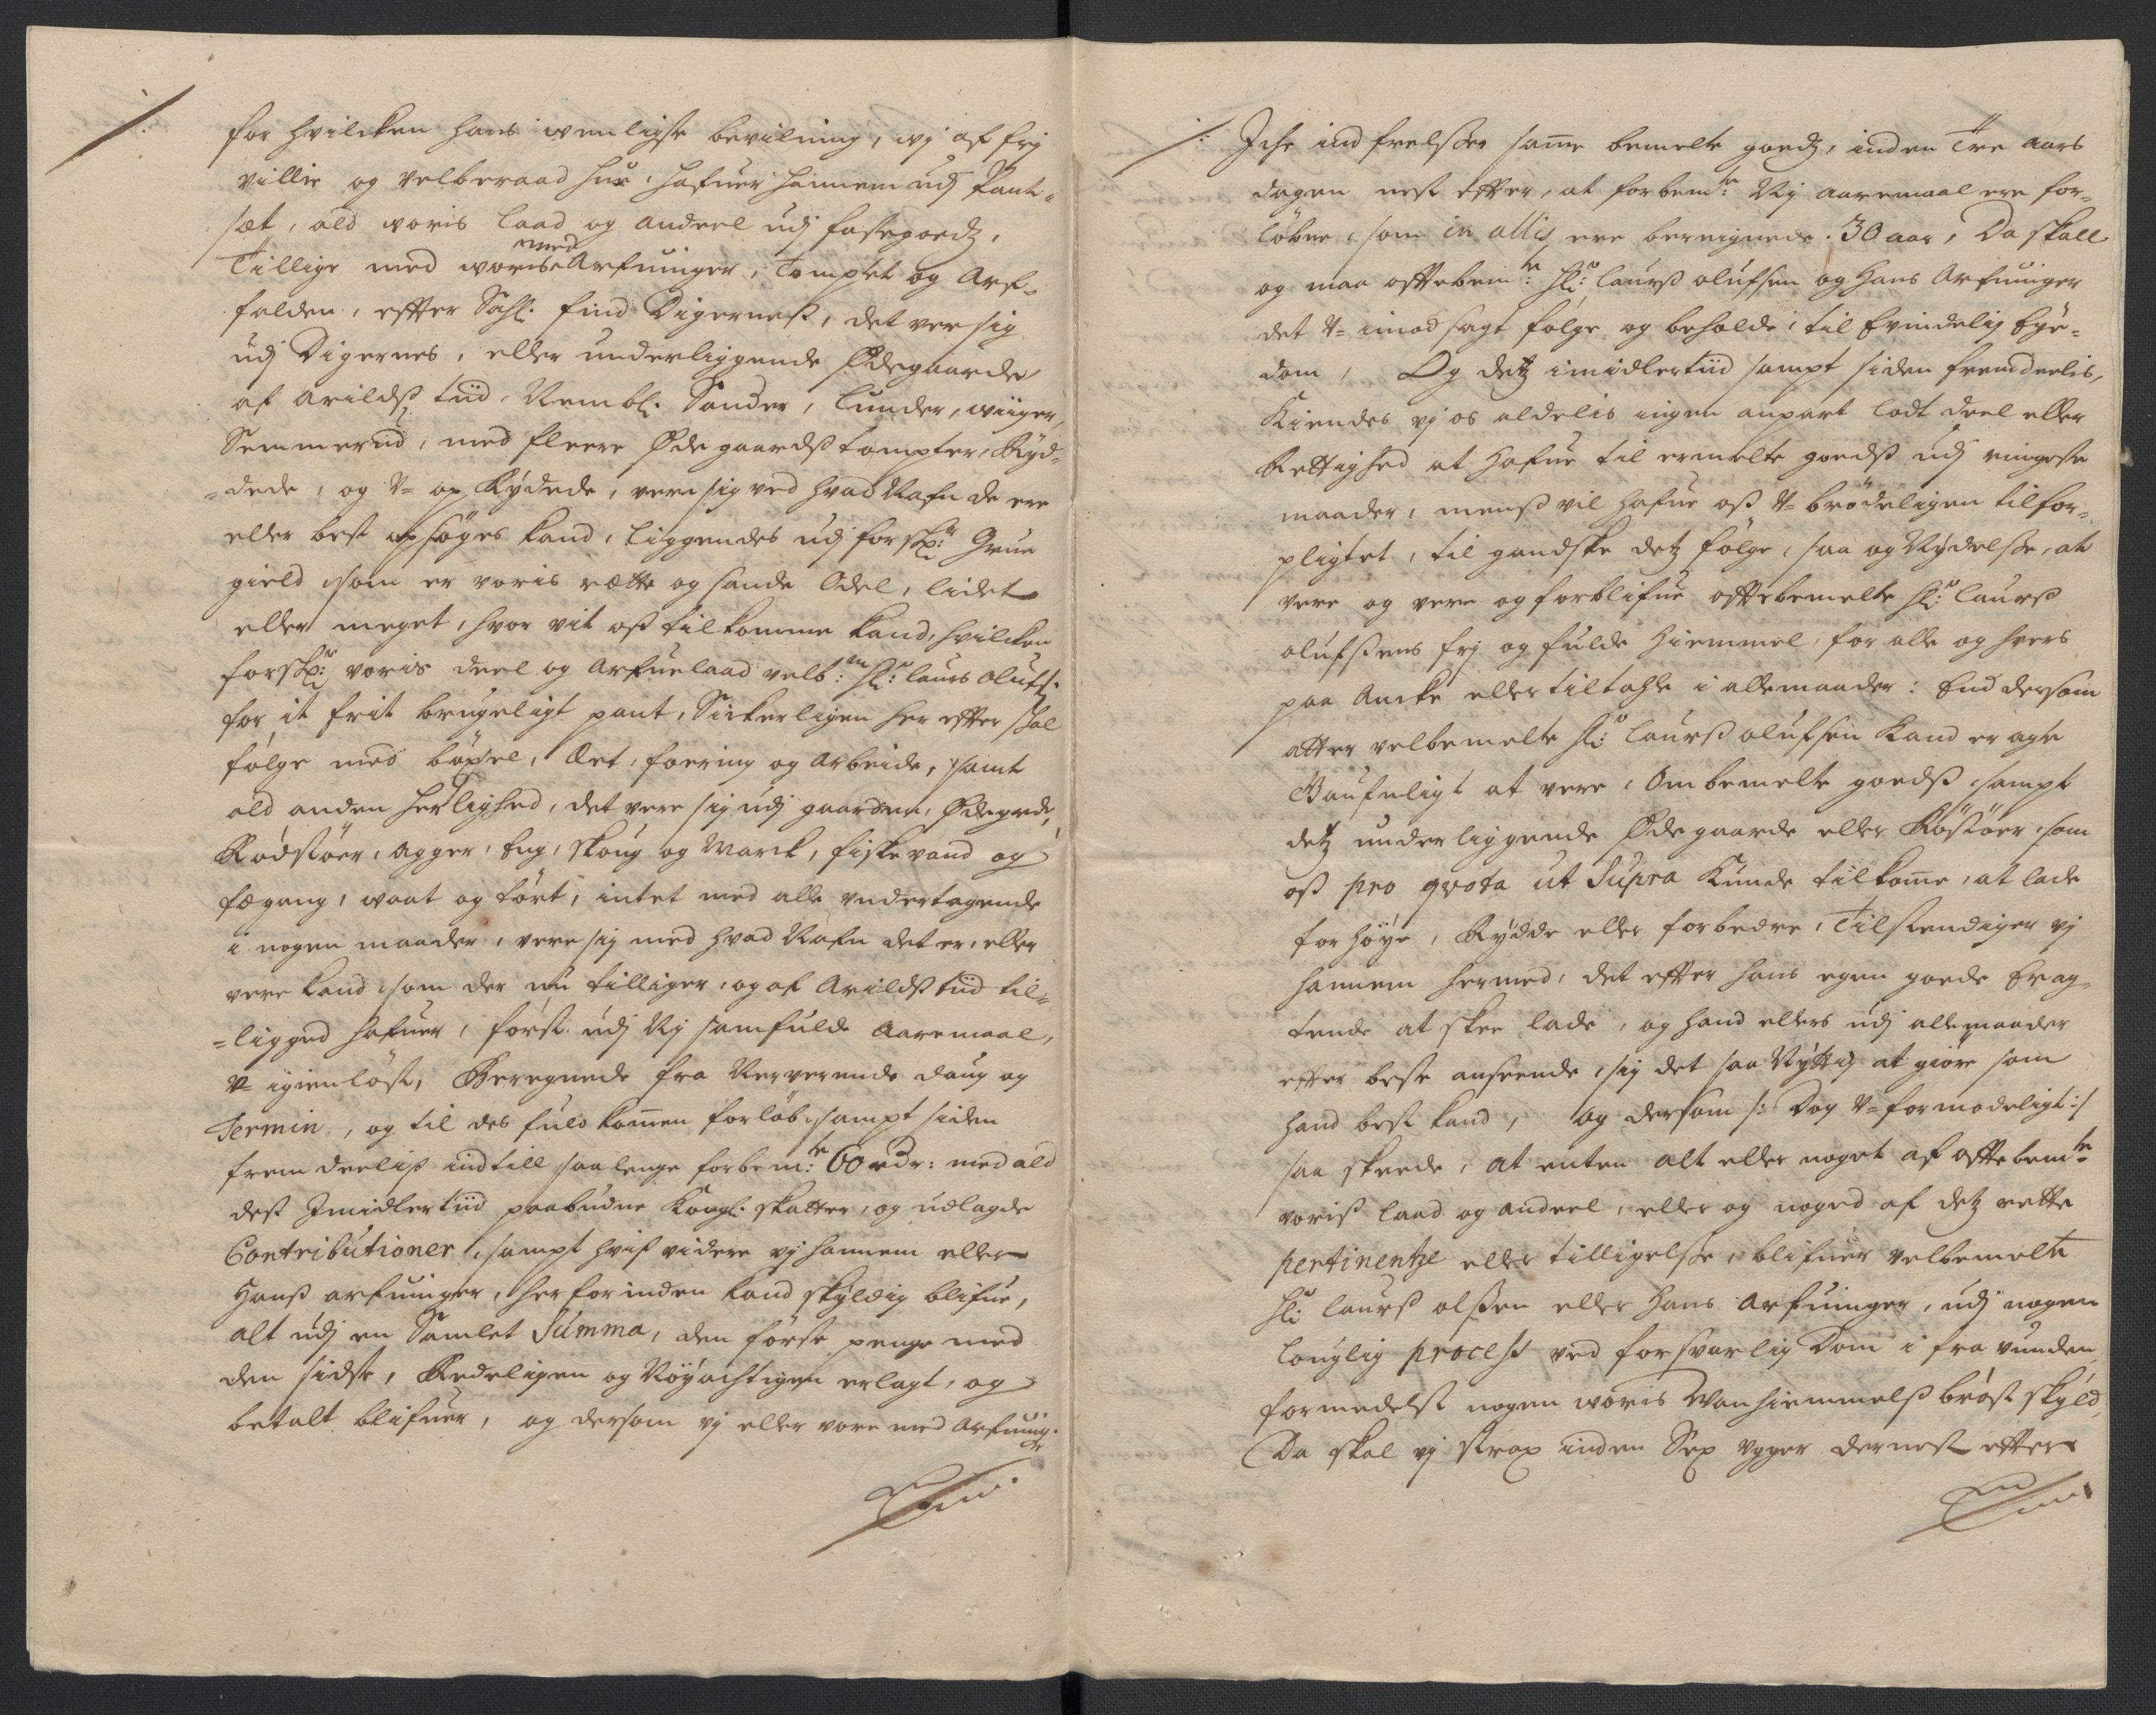 for hvilcken hans wenligste bevilning, wj af frj
villie og velberaad hue, hafuer hannem udj Pant-
sæt, ald woris laad og andeel udj fastegoedz,
Tillige med woris med Arfuinger, Tomptet og Arf-
falden, effter Sahl. find Digerness, det vere sig
udj Digernes, eller underliggende Ødegaarde
af arildss tiid, Nembl. Sander, Lunder, wiiger,
Semmerud, med fleere Ødegaardss tompter, Ryd-
=dede, og V= op Rydede, vere sig ved hvad Nafn de ere
eller best opsøges kand, liggendes udj forschr: Grue
gield, som er voris rætte og sande Odel, lidet
eller meget, hvor vit oss tilkomme kand, hvilcken
forschr: voris deel og Arfuelaad velb:te Hr: Laurs Olufs:
for it frit brugeligt pant, Sickerligen her effter skal
følge med bøxel, Let, foering og Arbeide, samt
ald anden herlighed, det vere sig udj gaarden, Ødegrde,
Rødstøer, agger, Eng, skoug og Marck, fiske vand og
fægang, waat og tørt, intet med alle vndertagende
i nogen maader, vere sig med hvad Nafn det er, eller
vere kand, som der nu tilliger, og af Arildss tiid til-
=ligged hafuer, først udj Nj samfulde Aaremaal,
V= igienløst, Beregnede fra Nerverende daug og
Termin, og til des fuldkomen forløb, sampt siden
fremdeeliss indtill saalenge forbem:te 60 rdr: med ald
dess Imidlertiid paabudne Kongl. skatter, og udlagde
Contributioner, sampt hvis videre vj hannem eller
Hanss arfuinger, her forinden kand skyldig blifue,
alt udj en Samlet Summa, den første penge med
den sidste, Redeligen og Nøyachtigen erlagt, og
betalt blifuer, og dersom vj eller vore med Arfuing:
Iche indfrelsser same bemelte goedz, inden Tre Aars
dagen nest effter, at forbem:te Nj aaremaal ere for-
løbne, som in allis ere bereignede 30 aar, Da skall
og maa offtebem:te Hr: Laurss olufsen og Hans Arfuinger
det V= imodsagt følge og beholde, til Evindelig Eye-
dom, Og detz imidlertiid sampt siden fremdeelis,
Kiendes vj os aldelis ingen anpart lodt deel eller
Rettighed at Hafue til ermelte goedss udj ringeste
maader, menss vil hafue oss V= brødeligen tilfor-
pligtet, til gandske detz følge, saa og Nydelsse, at
vere og vere og forblifue offtebemelte Hr: Laurss
olufssens frj og fulde Hiemmel, for alle og hvers
paa Ancke eller tiltahle i alle maader: End dersom
atter velbemelte Hr: Laurss olufsen Kand eragte
Gaufnligt at vere, Om bemelte goedss, sampt
detz underliggende Ødegaarde eller Røstøer, som
oss pro qvota ut Supra Kunde tilkome, at lade
forhøye, Rydde eller forbedre, Tilstendiger vj
hannem hermed, det effter hans egen goede Erag-
tende at skee lade, og hand ellers udj alle maader
effter beste anseende, sig det saa Nyttig at giøre som
hand best kand, og dersom /: Dog V= formodeligt :/
saa skeede, at enten alt eller noget af offtebem:te
voriss laad og andeel, eller og noged af detz rette
pertinentze eller tilligelsse, blifuer velbemelte
Hr: Laurss olssen eller Hans Arfuinger, udj nogen
louglig process ved forsvarlig Dom i fra vunden
formedelst nogen woris Vanhiemmelss brøst skyld,
Da skal vj strax inden Sex vgger dernest effter